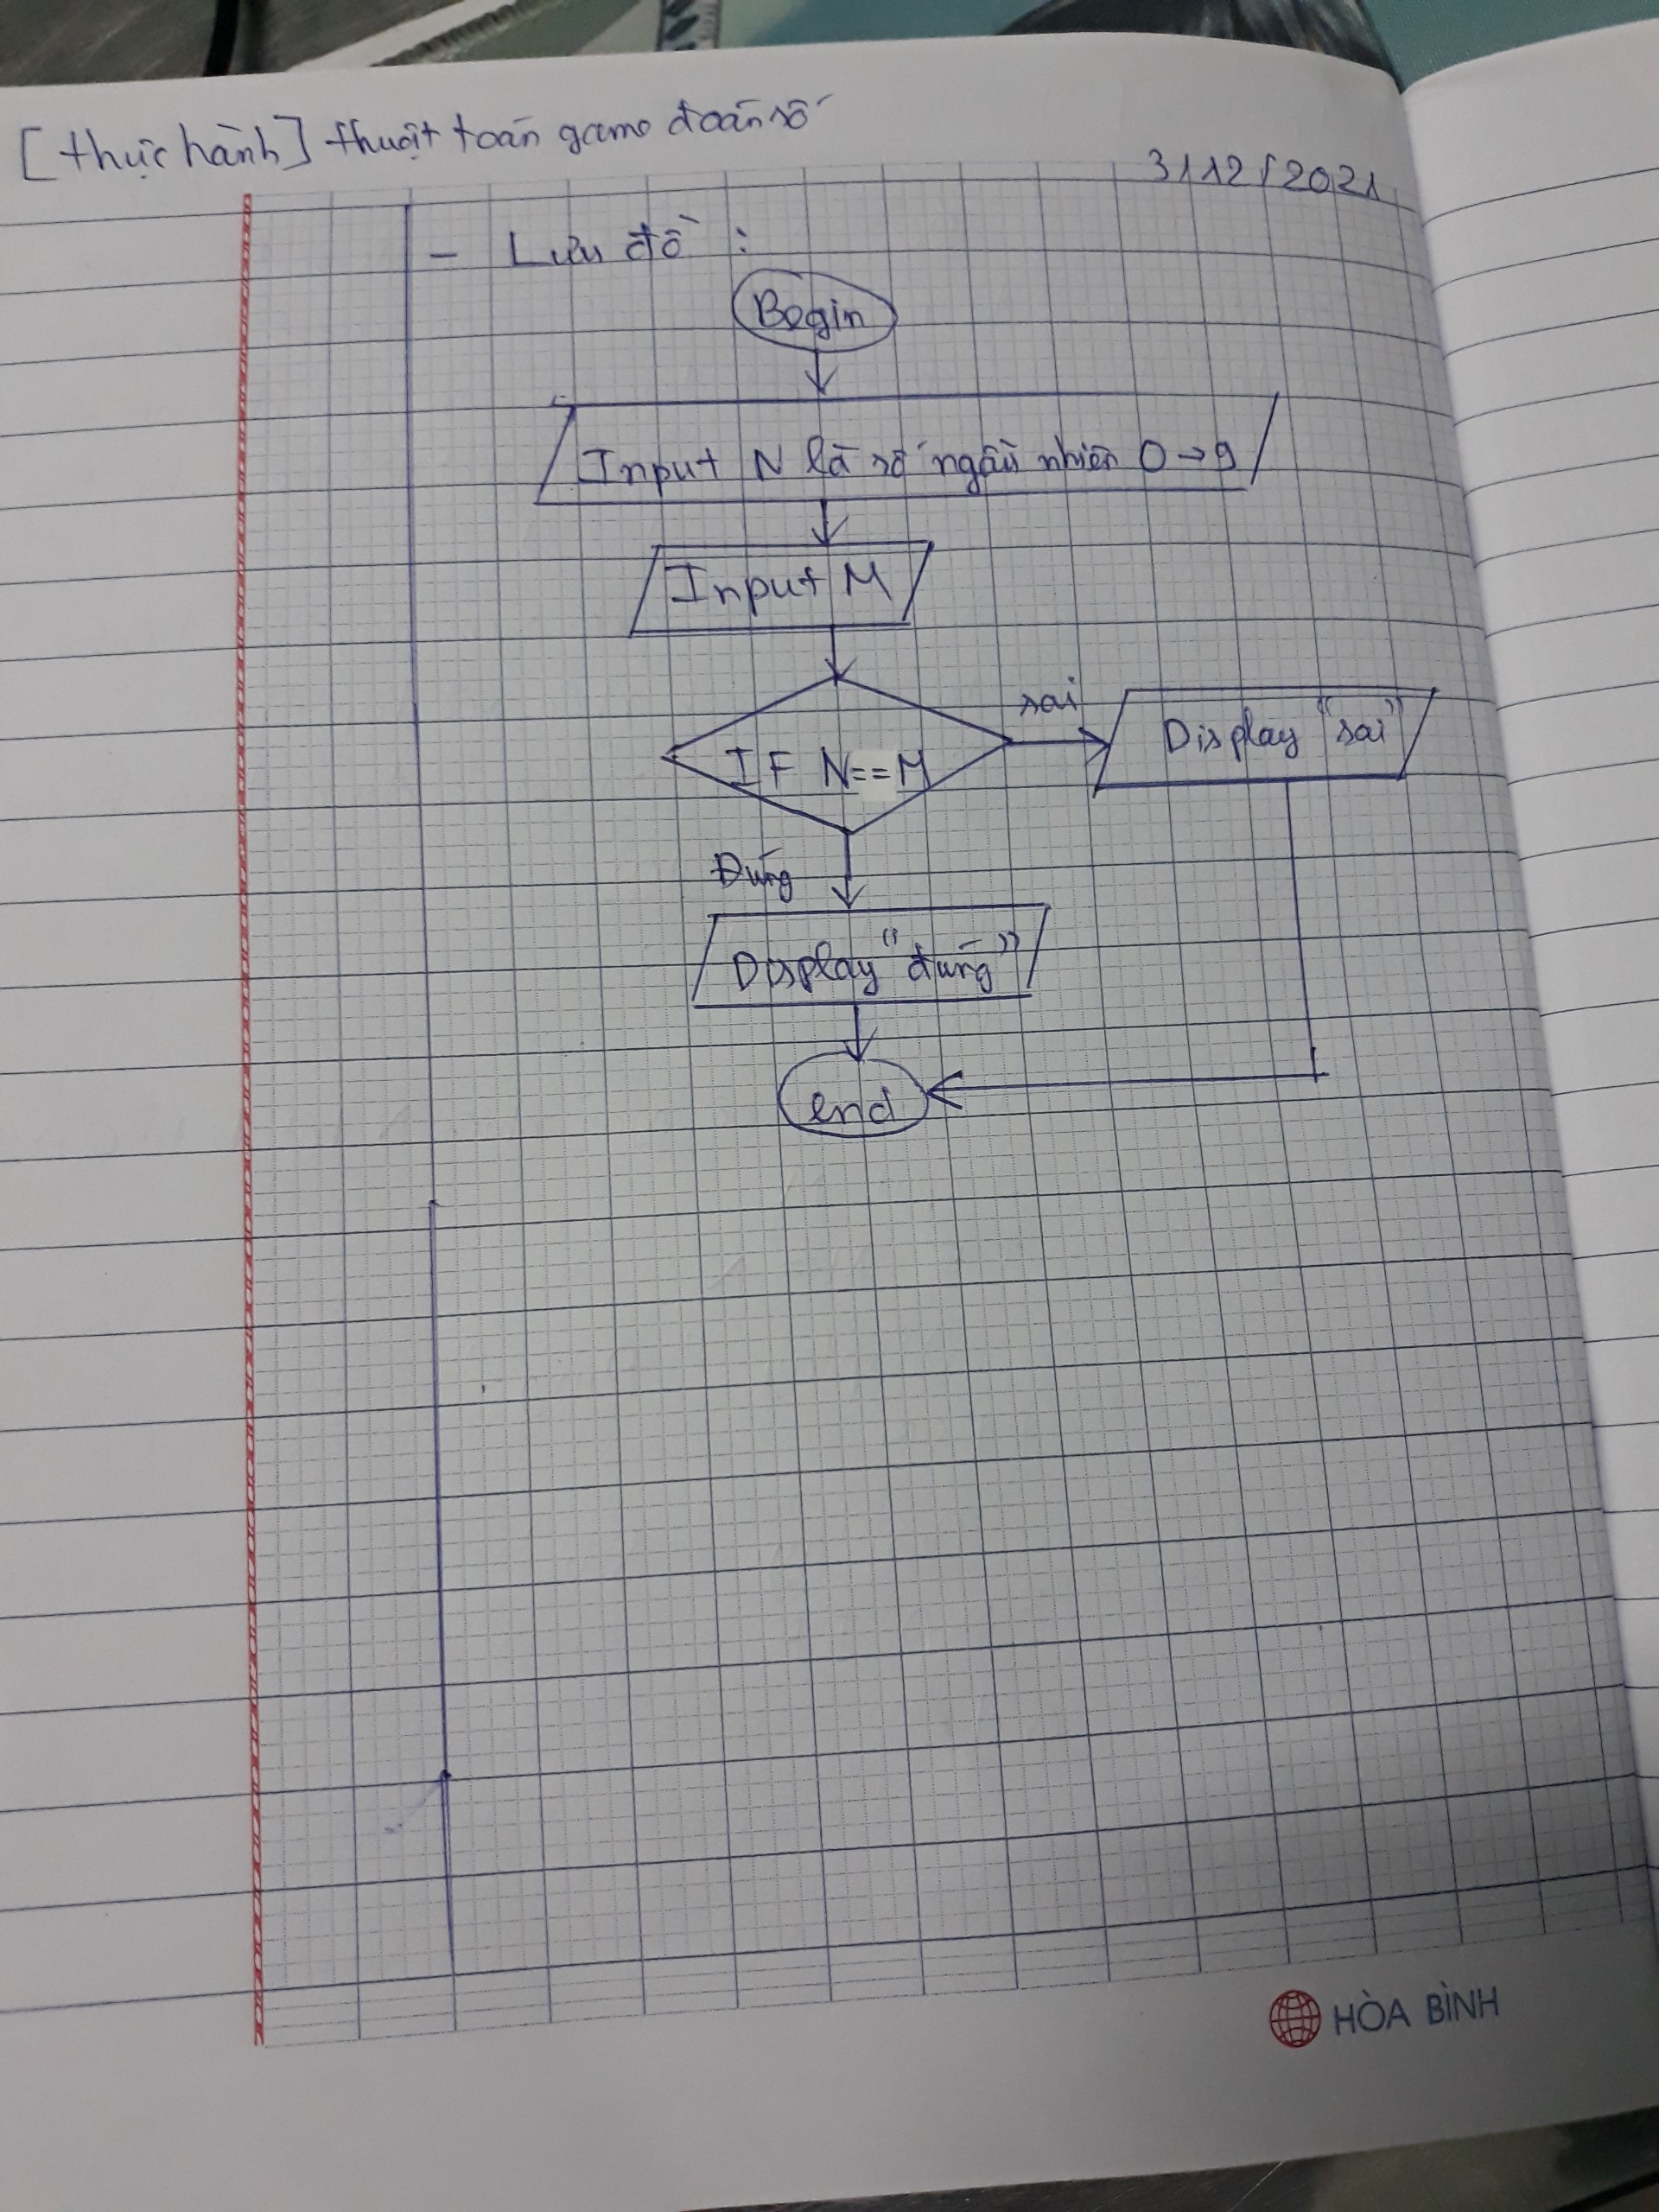 [thực hành] thuật toán game đoán số
3/12/2021
- Lưu đồ :
Begin
Input N là số ngẫu nhiên 0→9
Input M
IF N==M
sai
Display "sai"
Đúng
Display "đúng"
end
HÒA BÌNH